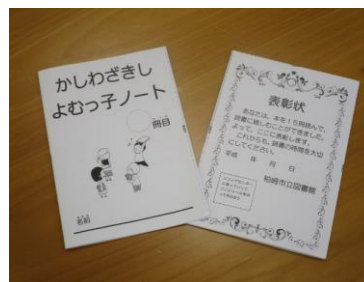 かしわざきし
よむっ子ノート
冊目
名前
表彰状
あなたは、本を15冊読んで、
読書に親しむことができました。
よって、ここに表彰します。
これからも、読書の時間を大切
にしてください。
平成　年　月　日
柏崎市立図書館